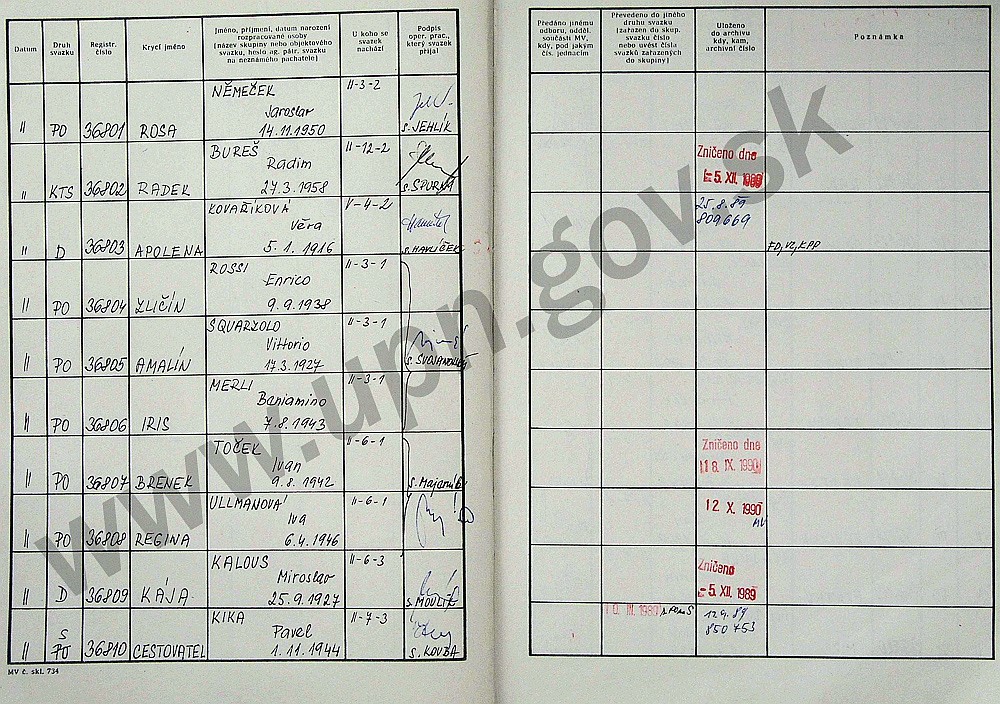 Datum
Druh svazku
Registr. číslo
Krycí jméno
Jméno, příjmení, datum narození
rozpracované osoby
(název skupiny nebo objektového
svazku, heslo ag. pátr. svazku
na neznámého pachatele)
U koho se
svazek
nachází
Podpis
oper. prac.,
který svazek
přijal
Předáno jinému
odboru, odděl.
součásti MV,
kdy, pod jakým
čís. jednacím
Převedeno do jiného
druhu svazku
(zařazen do skup.
svazku číslo
nebo uvést čísla
svazků zařazených
do skupiny)
Uloženo
do archivu
kdy, kam,
archivní číslo
Poznámka
NĚMEČEK II-3-2
Jaroslav
" PO 36801 ROSA 14.11.1950 s. JEHLÍK
BUREŠ II-12-2 Zničeno dne
Radim -5. XII. 1989
" KTS 36802 RADEK 27.3.1958 s. SPURNÁ
KOVAŘÍKOVÁ V-4-2 25.8.89
Věra 809669
" D 36803 APOLENA 5.1.1916 s. HAVLÍČEK FD, VZ, KPP
ROSSI II-3-1
Enrico
" PO 36804 ZLIČÍN 9.9.1938
SQUARZOLO II-3-1
Vittorio
" PO 36805 AMALÍN 17.3.1927
MERLI II-3-1
Beniamino
" PO 36806 IRIS 7.8.1943
TOČEK II-6-1 Zničeno dne
Ivan 18. IX. 1990
" PO 36807 BRENEK 9.8.1942
ULLMANOVÁ II-6-1 12 X. 1990
Iva MV
" PO 36808 REGINA 6.4.1946
KALOUS II-6-3 Zničeno
Miroslav -5. XII. 1989
" D 36809 KÁJA 25.9.1927
KIKA II-7-3
S Pavel 850453
" PO 36810 CESTOVATEL 1.11.1944 s. KOUBA
MV č. skl. 734
www.upn.gov.sk